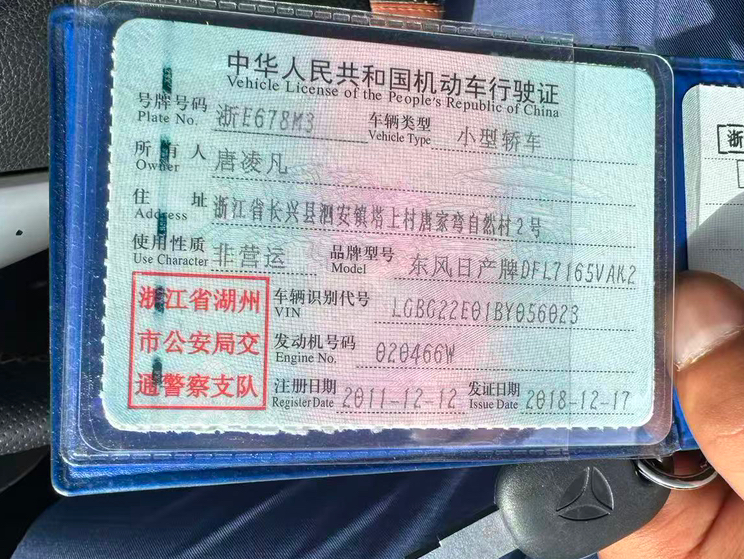 中华人民共和国机动车行驶证
Vehicle License of the People's Republic of China
号牌号码 浙E678M3 车辆类型 小型轿车
Plate No. Vehicle Type
所有人 唐凌凡
Owner
住址 浙江省长兴县泗安镇塔上村唐家弯自然村2号
Address
使用性质 非营运 品牌型号 东风日产牌DFL7165VAK2
Use Character Model
浙江省湖州
市公安局交
通警察支队
车辆识别代号 LGBG22E01BY056023
VIN
发动机号码 020466W
Engine No.
注册日期 2011-12-12 发证日期 2018-12-17
Register Date Issue Date
浙